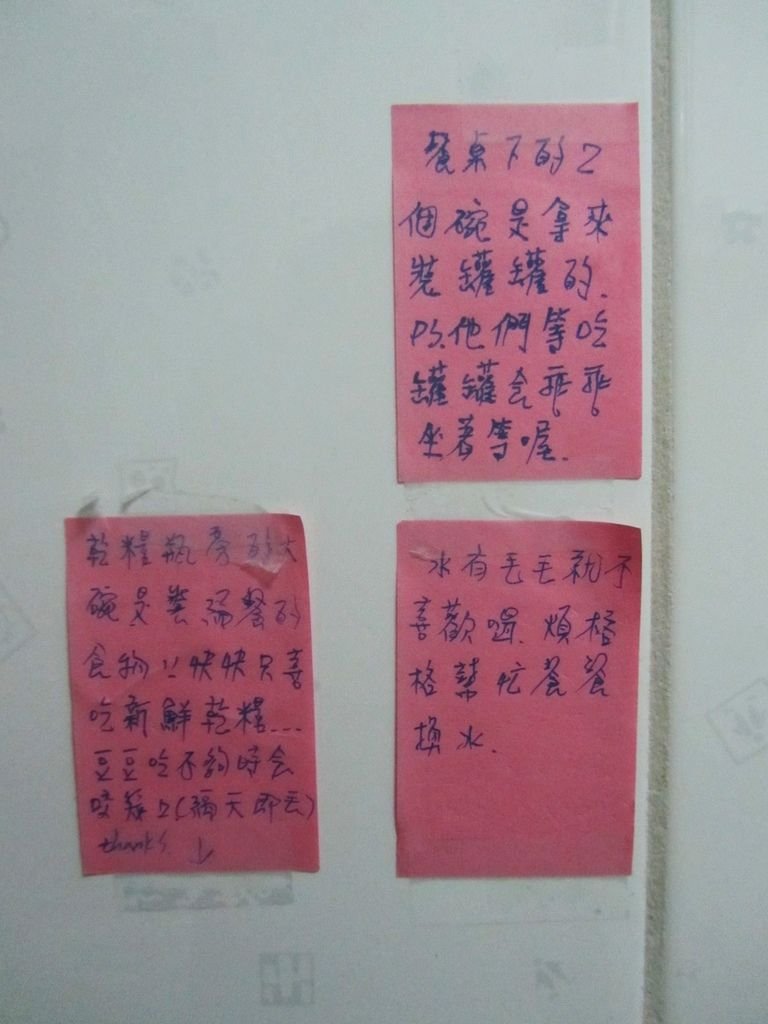 餐桌下的2
個碗是拿來
裝罐罐的.
PS.他們等吃
罐罐会乖乖
坐著等喔.
乾糧瓶旁的大
碗是裝隔餐的
食物!!快快只喜
吃新鮮乾糧...
豆豆吃不夠時会
(隔天即丟)
thanks ↓
水有毛毛就不
喜歡喝.煩格
格幫忙餐餐
換水.